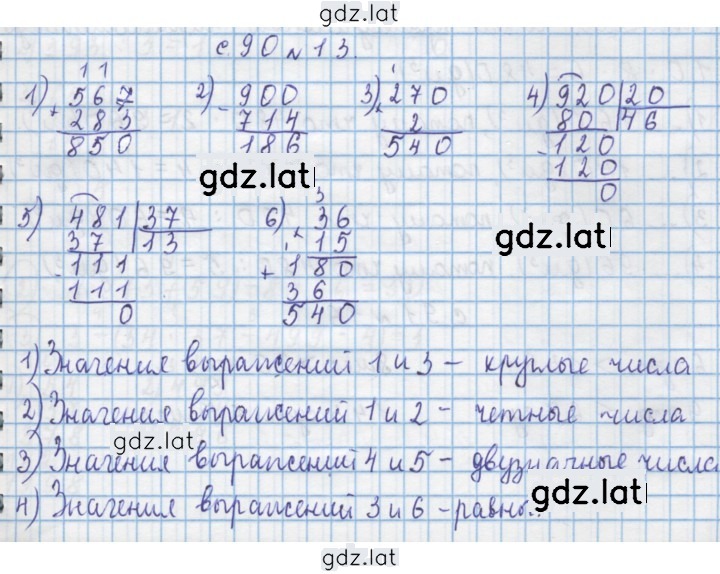 gdz.lat
с 90 № 13.
1 1 1
1) + 567 2) - 900 3) × 270 4) 920 | 20
283 714 2 80 | 46
850 186 540 - 120
120
0
gdz.lat gdz.lat
3
5) 481 | 37 6) × 36
37 | 13 15
- 111 + 180
111 36
0 540
1) Значения выражений 1 и 3 – круглые числа
2) Значения выражений 1 и 2 – четные числа
gdz.lat
3) Значения выражений 4 и 5 – двузначные числа
4) Значения выражений 3 и 6 – равны.
gdz.lat
gdz.lat